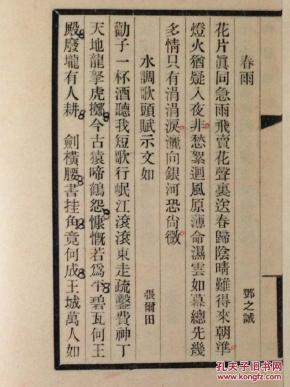 春雨
鄧之誠
花片真同急雨飛賣花聲裏送春歸陰晴難得來朝準
燈火猶疑入夜非愁絮迴風原薄命濕雲如幕總先幾
多情只有涓涓淚灑向銀河恐尚微
水調歌頭賦示文如
張爾田
勸子一杯酒聽我短歌行岷江滾滾東走疏鑿費神丁
天地龍拏虎擲今古猿啼鶴怨慷慨若為平碧瓦何王
殿廢壠有人耕 劍橫腰書挂角竟何成王城萬人如